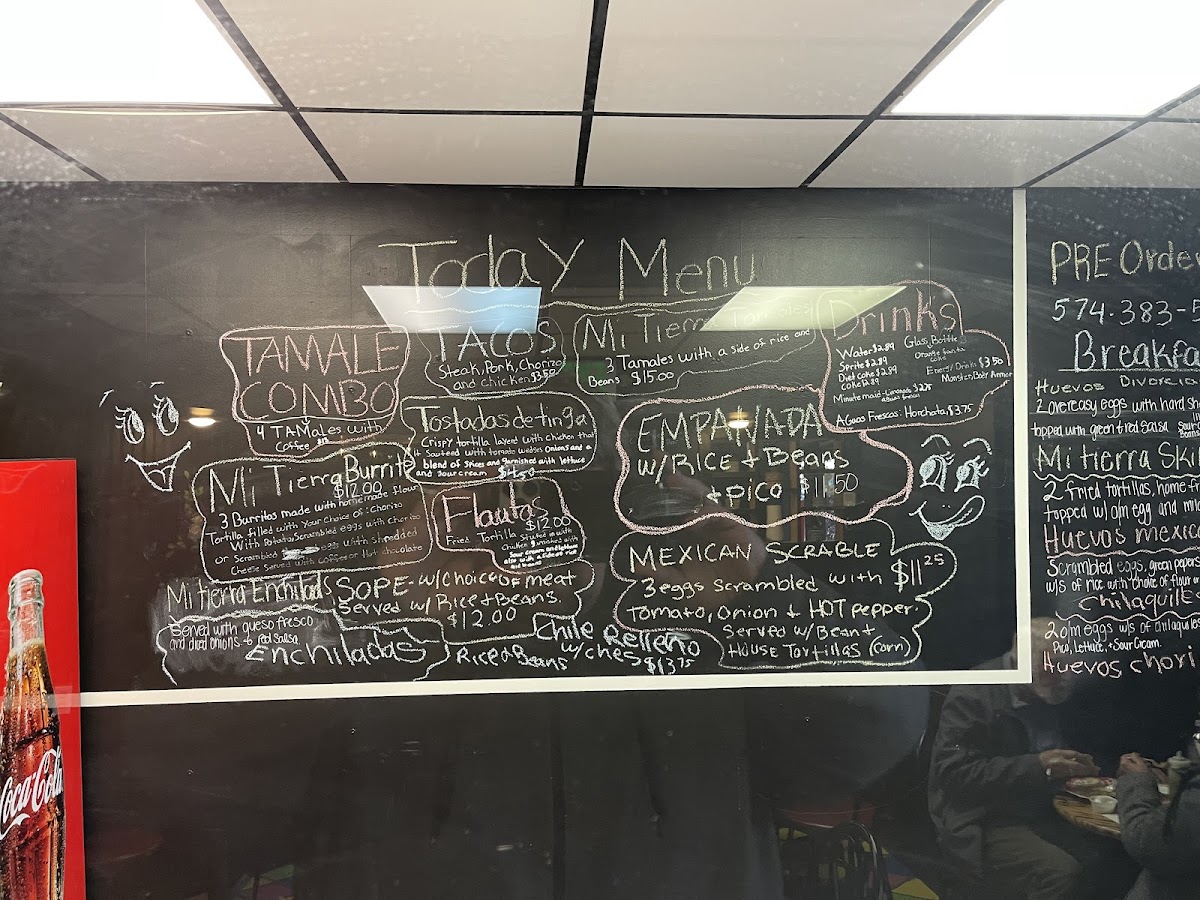 Today Menu
TAMALE
COMBO
4 TAMales with
Coffee
TACOS
Steak, Pork, Chorizo
and chicken $3.50
Mi Tierra Tamales
3 Tamales with a side of rice and
Beans $15.00
Drink's
Water $2.89
Sprite $2.89
Diet coke $2.89
Coke $2.89
Glass Bottle
Orange fanta
coke
Energy Drinks $3.50
Monster, Body Armor
Minute maid-Limonade $2.75
Aguas Frescas: Horchata, $3.75
Tostadas de tinga
Crispy tortilla layerd with chicken that
it Sauteed with tomado wedges Onions and a
blend of spices and garnished with lettuce
and sour cream
EMPANADA
w/RICE + Beans
+ pico $11.50
Mii Tierra Burrito
$12.00
3 Burritos made with homemade flour
Tortilla filled with Your Choice of: Chorizo
With Potato, Scrambled eggs with Chorizo
or Scrambled egg with shredded
Cheese Served with Coffee or Hot chocolate
Flautas
$12.00
Fried Tortilla Stuffed with
Chicken garnished with
Sour cream and lettuce
also with a side of rice
and beans
MEXICAN SCRABLE
$11.25
3 eggs Scrambled with
Tomato, Onion + HOT pepper.
Served w/ Bean +
HOUSE TORTILLAS (corn)
Mi tierra Enchiladas
Served with queso fresco
and diced onions + red salsa
Enchiladas
SOPE - w/Choice OF meat
Served w/ Rice + Beans.
$12.00
Chile Relleno
w/ches
$13.75
Rice & Beans
PRE Order
574-383-5
Breakfa
Huevos Divorcio
2 overeasy eggs with hard sh
topped with green + red Salsa
Mi tierra Skil
2 fried tortillas, home fr
topped w/ o/m egg and mi
Huevos mexica
Scrambled eggs, green papers
w/s of rice with choice of flour o
Chilaquile
2 o/m eggs w/s of chilaquiles
Pico, Lettuce, + Sour Cream.
Huevos chori
Coca-Cola